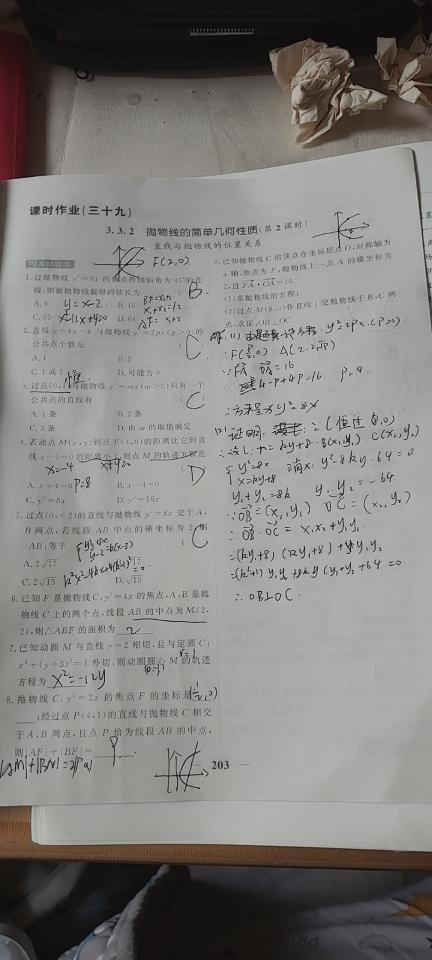 课时作业(三十九)
3.3.2 抛物线的简单几何性质(第2课时)
直线与抛物线的位置关系
F(2,0)
1.过抛物线y²=8x的焦点作倾斜角为45°的直
线,则被抛物线截得的弦长为 B
A.8 B.16
C.32 D.64
y=x-2
2.直线y=kx-k与抛物线y²=2px(p>0)的
公共点个数是 C
A.1 B.2
C.1或2 D.可能为0
3.过点(0,1)与抛物线y²=mx(m>0)只有一个
公共点的直线有 C
A.1条 B.2条
C.3条 D.由m的取值确定
4.若动点M(x,y)到点F(4,0)的距离比它到直
线x+5=0的距离小1,则点M的轨迹方程是
x=-4 D
A.x+4=0 B.x-4=0
P=8
C.y²=8x D.y²=16x
5.过点(0,-2)的直线与抛物线y²=8x交于A,
B两点,若线段AB中点的横坐标为2,则
|AB|等于 C
A.2√17 B.√17
C.2√15 D.√15
6.已知F是抛物线C:y²=4x的焦点,A,B是抛
物线C上的两个点,线段AB的中点为M(2,
2),则△ABF的面积为 2
7.已知动圆M与直线y=2相切,且与定圆C:
x²+(y+3)²=1外切,则动圆圆心M的轨迹
方程为 x²=-12y
8.抛物线C:y²=2x的焦点F的坐标是(1/2,0)
;经过点P(4,1)的直线与抛物线C相交
于A,B两点,且点P恰为线段AB的中点,
则|AF|+|BF|= 9
9.已知抛物线C的顶点在坐标原点O,对称轴为
x轴,焦点为F,抛物线上一点A的横坐标为
2,且FA·OA=16.
(1)求抛物线的方程;
(2)过点M(8,0)作直线l交抛物线于B,C两
点,求证:OB⊥OC.
y²=2px(p>0)
∴F(P/2,0) A(2,2√P)
∵FA·OA=16
4-p+4p=16 p=4
∴方程为y²=8x
(2)证明:
∴设l:x=ky+8 B(x₁,y₁) C(x₂,y₂)
{y²=8x
x=ky+8 消x:y²-8ky-64=0
y₁+y₂=8k y₁y₂=-64
∵OB=(x₁,y₁) OC=(x₂,y₂)
∴OB·OC=x₁x₂+y₁y₂
=(ky₁+8)(ky₂+8)+y₁y₂
=(k²+1)y₁y₂+8k(y₁+y₂)+64=0
∴OB⊥OC.
203